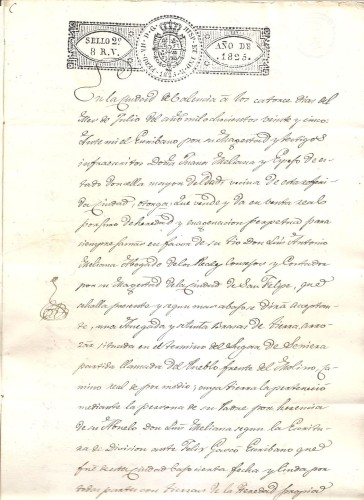 SELLO 2º
8 R.V.
HISP. ET
AÑO DE
1825.
En la ciudad de Valencia a los catorce dias del
Mes de Julio del año mil ochocientos veinte y cinco
Ante mi el Escribano por su Magestad y testigos
infraescritos Doña Juana Meliana y de es-
tado mayor de edad, vecina de esta referi-
da Ciudad, otorga: Que vende y da en venta real
por juro de heredad y enagenacion perpetua para
siempre jamas en favor de su tio Don Luis Antonio
Meliana Abogado de los Reales Consejos y Contador
por su Magestad de la ciudad de San Felipe, que
se halla presente y segun mas abajo se dirá aceptan-
te, una Anegada y Brazas de tierra arro-
zar situada en el termino del Lugar de Senera
partida llamada del Pueblo, frente del Molino, ca-
mino real de por medio; cuya tierra la perteneció
mediante la persona de su Padre por herencia
de su Abuelo Don Luis Meliana segun la Escritu-
ra de Division ante Felix Escribano que
fué de esta ciudad bajo cierta fecha y linda por
todas partes con tierras de la heredad